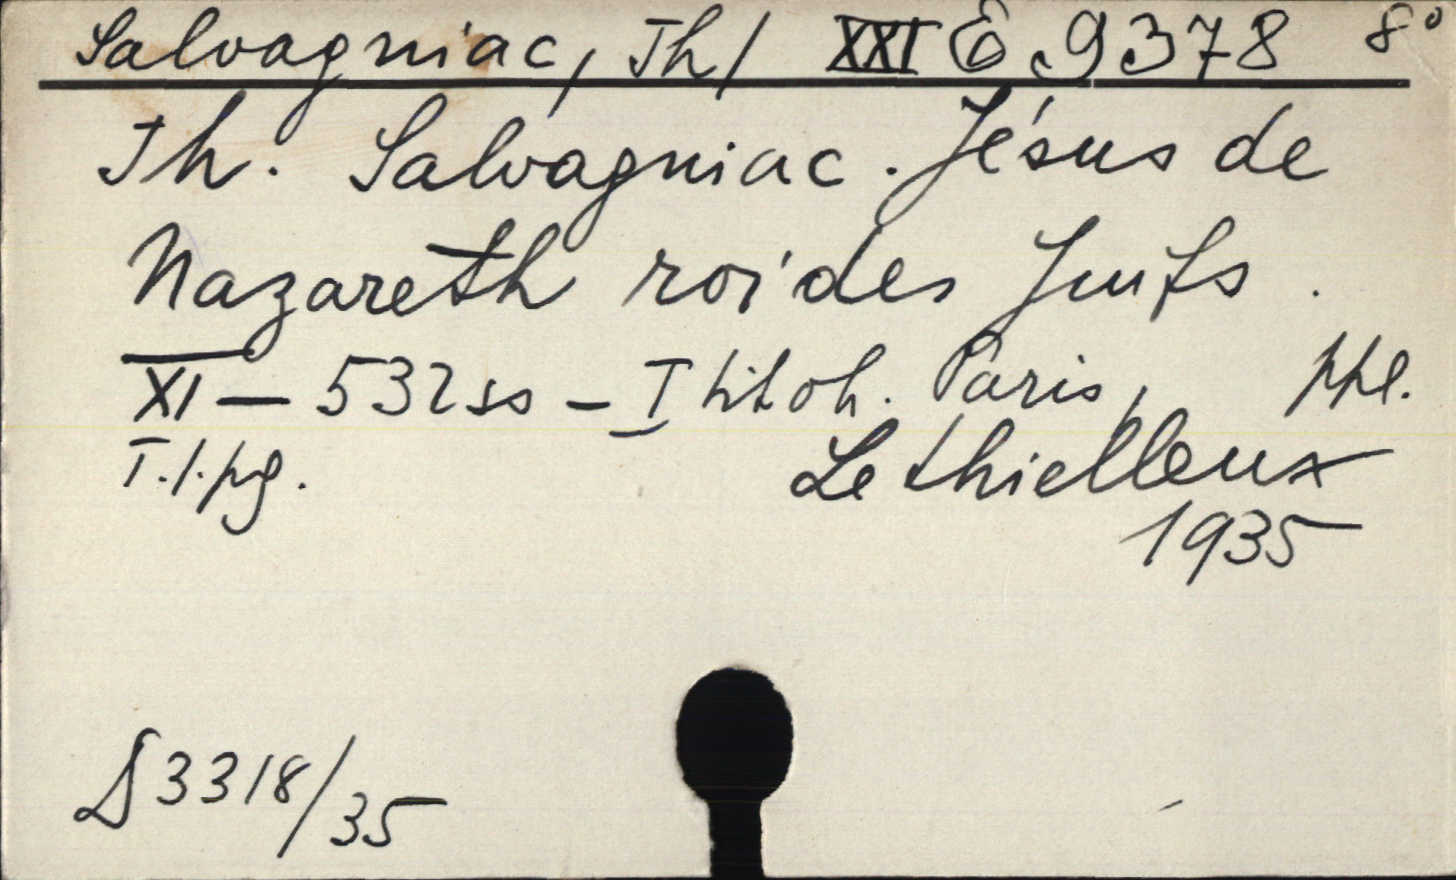 Salvagniac, Th/ XXI E. 9378 8°
Th. Salvagniac. Jésus de
Nazareth roi des Juifs.
XI — 532 ss — I tit. ob. Paris, ppl.
T. 1. pg. Lethielleux
1935
3318/35